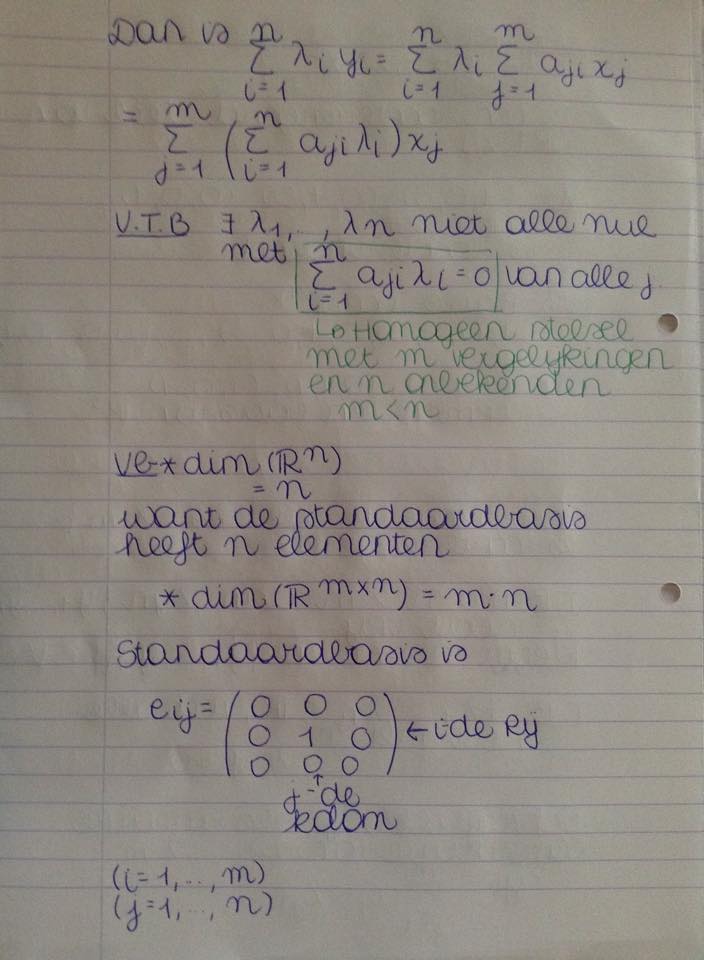 Dan is $\sum_{i=1}^{n} \lambda_i y_i = \sum_{i=1}^{n} \lambda_i \sum_{j=1}^{m} a_{ji} x_j$
$= \sum_{j=1}^{m} \left( \sum_{i=1}^{n} a_{ji} \lambda_i \right) x_j$
V.T.B ∃ λ1, .., λn niet alle nul
met $\sum_{i=1}^{n} a_{ji} \lambda_i = 0$ van alle j
↳ Homogeen stelsel
met m vergelijkingen
en n onbekenden
m < n
VB * dim (ℝⁿ)
= n
want de standaardbasis
heeft n elementen
* dim (ℝ^{m×n}) = m·n
Standaardbasis is
eij = ( 0 0 0
0 1 0 ← i de Rij
0 0 0 )
↑
j-de
kolom
(i=1, .., m)
(j=1, .., n)